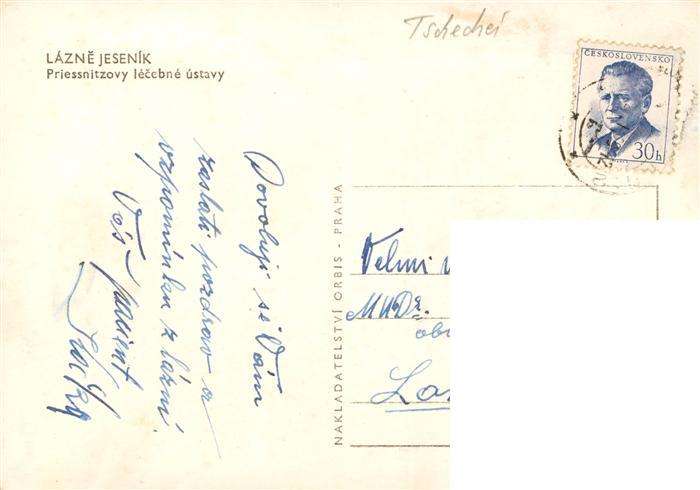 Tschechei
LÁZNĚ JESENÍK
Priessnitzovy léčebné ústavy
ČESKOSLOVENSKO
30h
Dovoluji si Vám
zaslati pozdrav a
vzpomínku z lázní.
Váš pacient
NAKLADATELSTVÍ ORBIS - PRAHA
Velmi
MUDr.